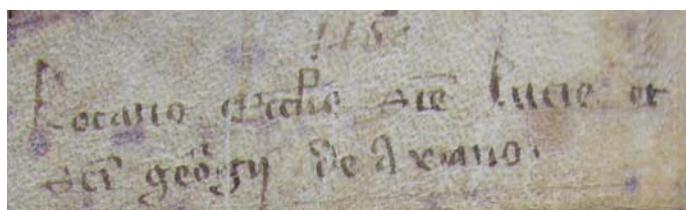 Locatio Eccl̄ie Sc̄e Lucie et
Sc̄i georgij de Ariano.